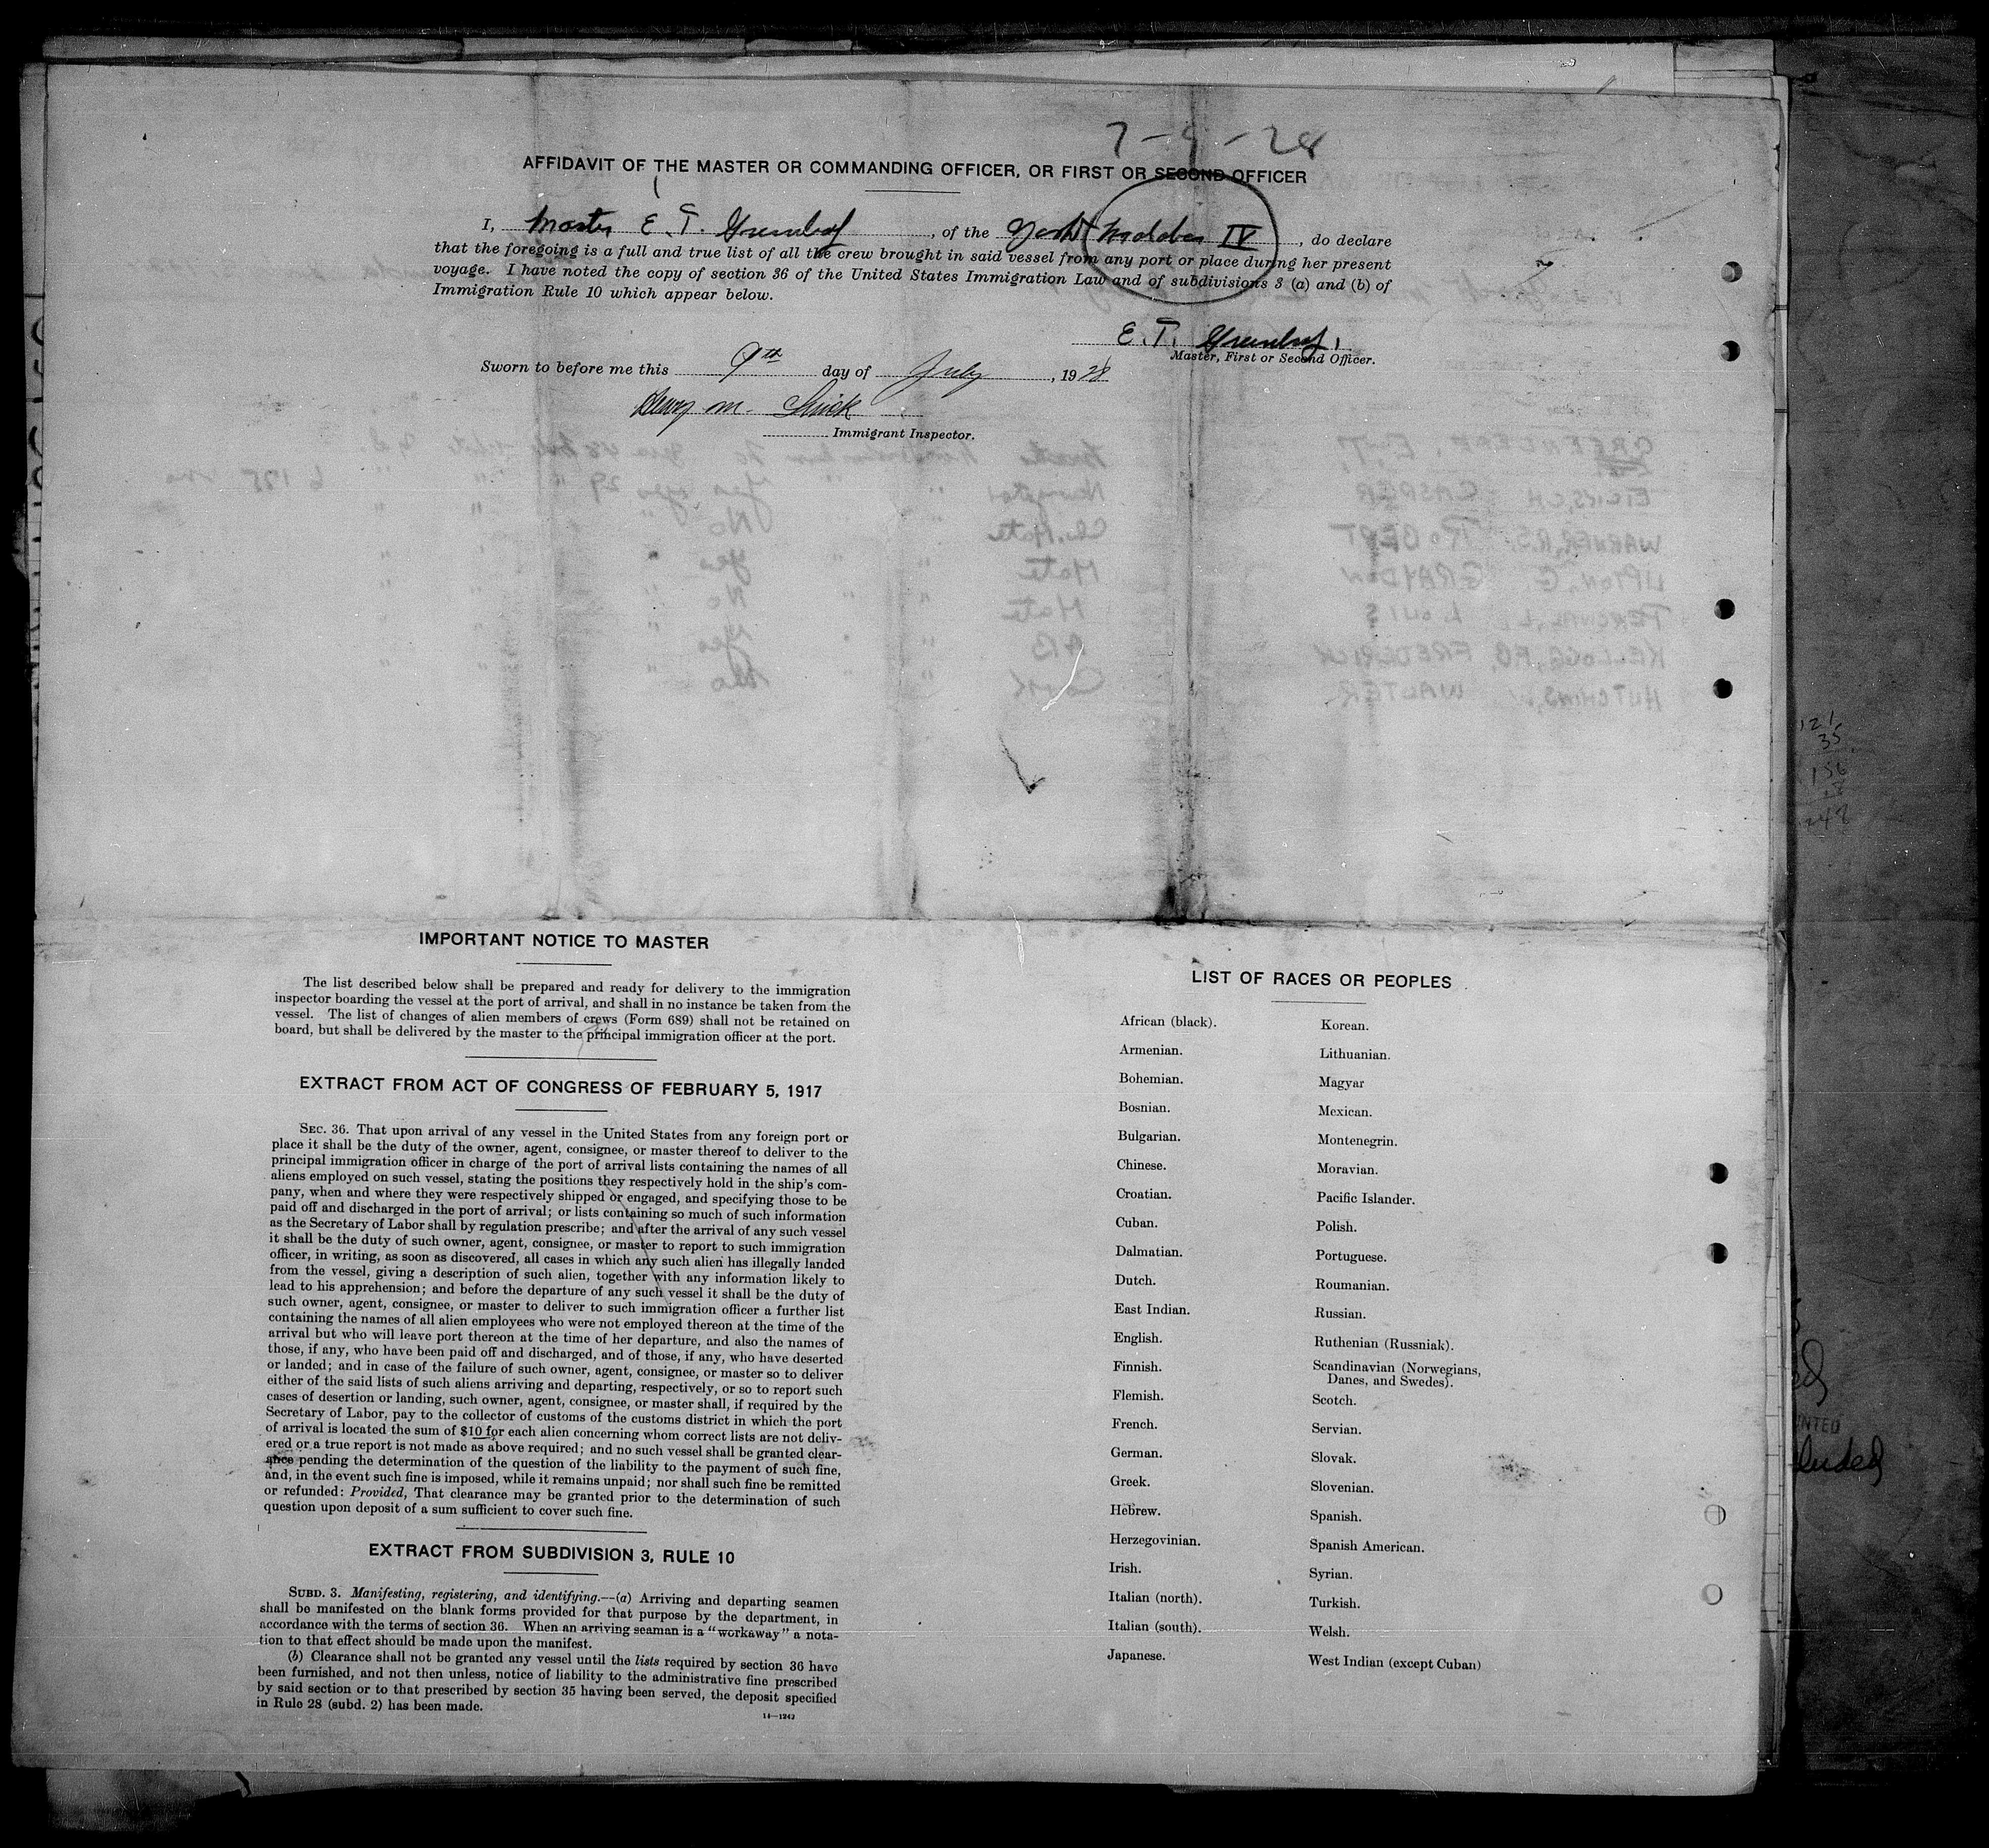 7-9-28
AFFIDAVIT OF THE MASTER OR COMMANDING OFFICER, OR FIRST OR SECOND OFFICER
I, Master E. T. Greenleaf, of the Yacht Malabar IV, do declare
that the foregoing is a full and true list of all the crew brought in said vessel from any port or place during her present
voyage. I have noted the copy of section 36 of the United States Immigration Law and of subdivisions 3 (a) and (b) of
Immigration Rule 10 which appear below.
E. T. Greenleaf,
Master, First or Second Officer.
Sworn to before me this 9th day of July, 1928
Henry M.
Immigrant Inspector.
IMPORTANT NOTICE TO MASTER
The list described below shall be prepared and ready for delivery to the immigration
inspector boarding the vessel at the port of arrival, and shall in no instance be taken from the
vessel. The list of changes of alien members of crews (Form 689) shall not be retained on
board, but shall be delivered by the master to the principal immigration officer at the port.
EXTRACT FROM ACT OF CONGRESS OF FEBRUARY 5, 1917
SEC. 36. That upon arrival of any vessel in the United States from any foreign port or
place it shall be the duty of the owner, agent, consignee, or master thereof to deliver to the
principal immigration officer in charge of the port of arrival lists containing the names of all
aliens employed on such vessel, stating the positions they respectively hold in the ship's com-
pany, when and where they were respectively shipped or engaged, and specifying those to be
paid off and discharged in the port of arrival; or lists containing so much of such information
as the Secretary of Labor shall by regulation prescribe; and after the arrival of any such vessel
it shall be the duty of such owner, agent, consignee, or master to report to such immigration
officer, in writing, as soon as discovered, all cases in which any such alien has illegally landed
from the vessel, giving a description of such alien, together with any information likely to
lead to his apprehension; and before the departure of any such vessel it shall be the duty of
such owner, agent, consignee, or master to deliver to such immigration officer a further list
containing the names of all alien employees who were not employed thereon at the time of the
arrival but who will leave port thereon at the time of her departure, and also the names of
those, if any, who have been paid off and discharged, and of those, if any, who have deserted
or landed; and in case of the failure of such owner, agent, consignee, or master so to deliver
either of the said lists of such aliens arriving and departing, respectively, or so to report such
cases of desertion or landing, such owner, agent, consignee, or master shall, if required by the
Secretary of Labor, pay to the collector of customs of the customs district in which the port
of arrival is located the sum of $10 for each alien concerning whom correct lists are not deliv-
ered or a true report is not made as above required; and no such vessel shall be granted clear-
ance pending the determination of the question of the liability to the payment of such fine,
and, in the event such fine is imposed, while it remains unpaid; nor shall such fine be remitted
or refunded: Provided, That clearance may be granted prior to the determination of such
question upon deposit of a sum sufficient to cover such fine.
EXTRACT FROM SUBDIVISION 3, RULE 10
SUBD. 3. Manifesting, registering, and identifying.—(a) Arriving and departing seamen
shall be manifested on the blank forms provided for that purpose by the department, in
accordance with the terms of section 36. When an arriving seaman is a "workaway" a nota-
tion to that effect should be made upon the manifest.
(b) Clearance shall not be granted any vessel until the lists required by section 36 have
been furnished, and not then unless, notice of liability to the administrative fine prescribed
by said section or to that prescribed by section 35 having been served, the deposit specified
in Rule 28 (subd. 2) has been made.
14—1243
LIST OF RACES OR PEOPLES
African (black).
Armenian.
Bohemian.
Bosnian.
Bulgarian.
Chinese.
Croatian.
Cuban.
Dalmatian.
Dutch.
East Indian.
English.
Finnish.
Flemish.
French.
German.
Greek.
Hebrew.
Herzegovinian.
Irish.
Italian (north).
Italian (south).
Japanese.
Korean.
Lithuanian.
Magyar
Mexican.
Montenegrin.
Moravian.
Pacific Islander.
Polish.
Portuguese.
Roumanian.
Russian.
Ruthenian (Russniak).
Scandinavian (Norwegians,
Danes, and Swedes).
Scotch.
Servian.
Slovak.
Slovenian.
Spanish.
Spanish American.
Syrian.
Turkish.
Welsh.
West Indian (except Cuban)
121
35
156